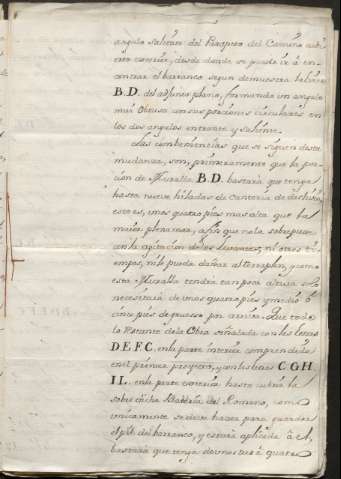 angulo saliente del Parapeto del Camino cubierto
desde donde se puede ir à encontrar
el barranco segun demuestra la linea
B.D. del adjunto plano, formando un angulo
mui obtuso con sus porciones circulares en
los dos angulos entrante y saliente.
Las conbeniencias que se siguen desta
mudanza, son, primeramente que la porcion
de Muralla B.D. bastará que tenga
hasta nueve hiladas de canteria de
esto es, unos quatro pies mas alta que la
maior plenamar, a fin que no la sobrepuje
en la agitacion de los levantes, ni otros tiempos,
ni le pueda dañar al terraplen, y como
esta Muralla tendra tan poca altura solo
necesitará de unos quatro pies y medio ò
cinco pies de grueso por arriva. Que toda
la Restante de la Obra señalada con las letras
D.E.F.C. en la parte interior comprendida
en el primer proyecto, y con las letras C.G.H.
I.L. en la parte exterior hasta cubrir la
sobre dicha Bateria del Romano, como
unicamente se debe hacer para guardar
el pie del barranco, y estará aplicada à el,
bastará que tenga de unos tres à quatro